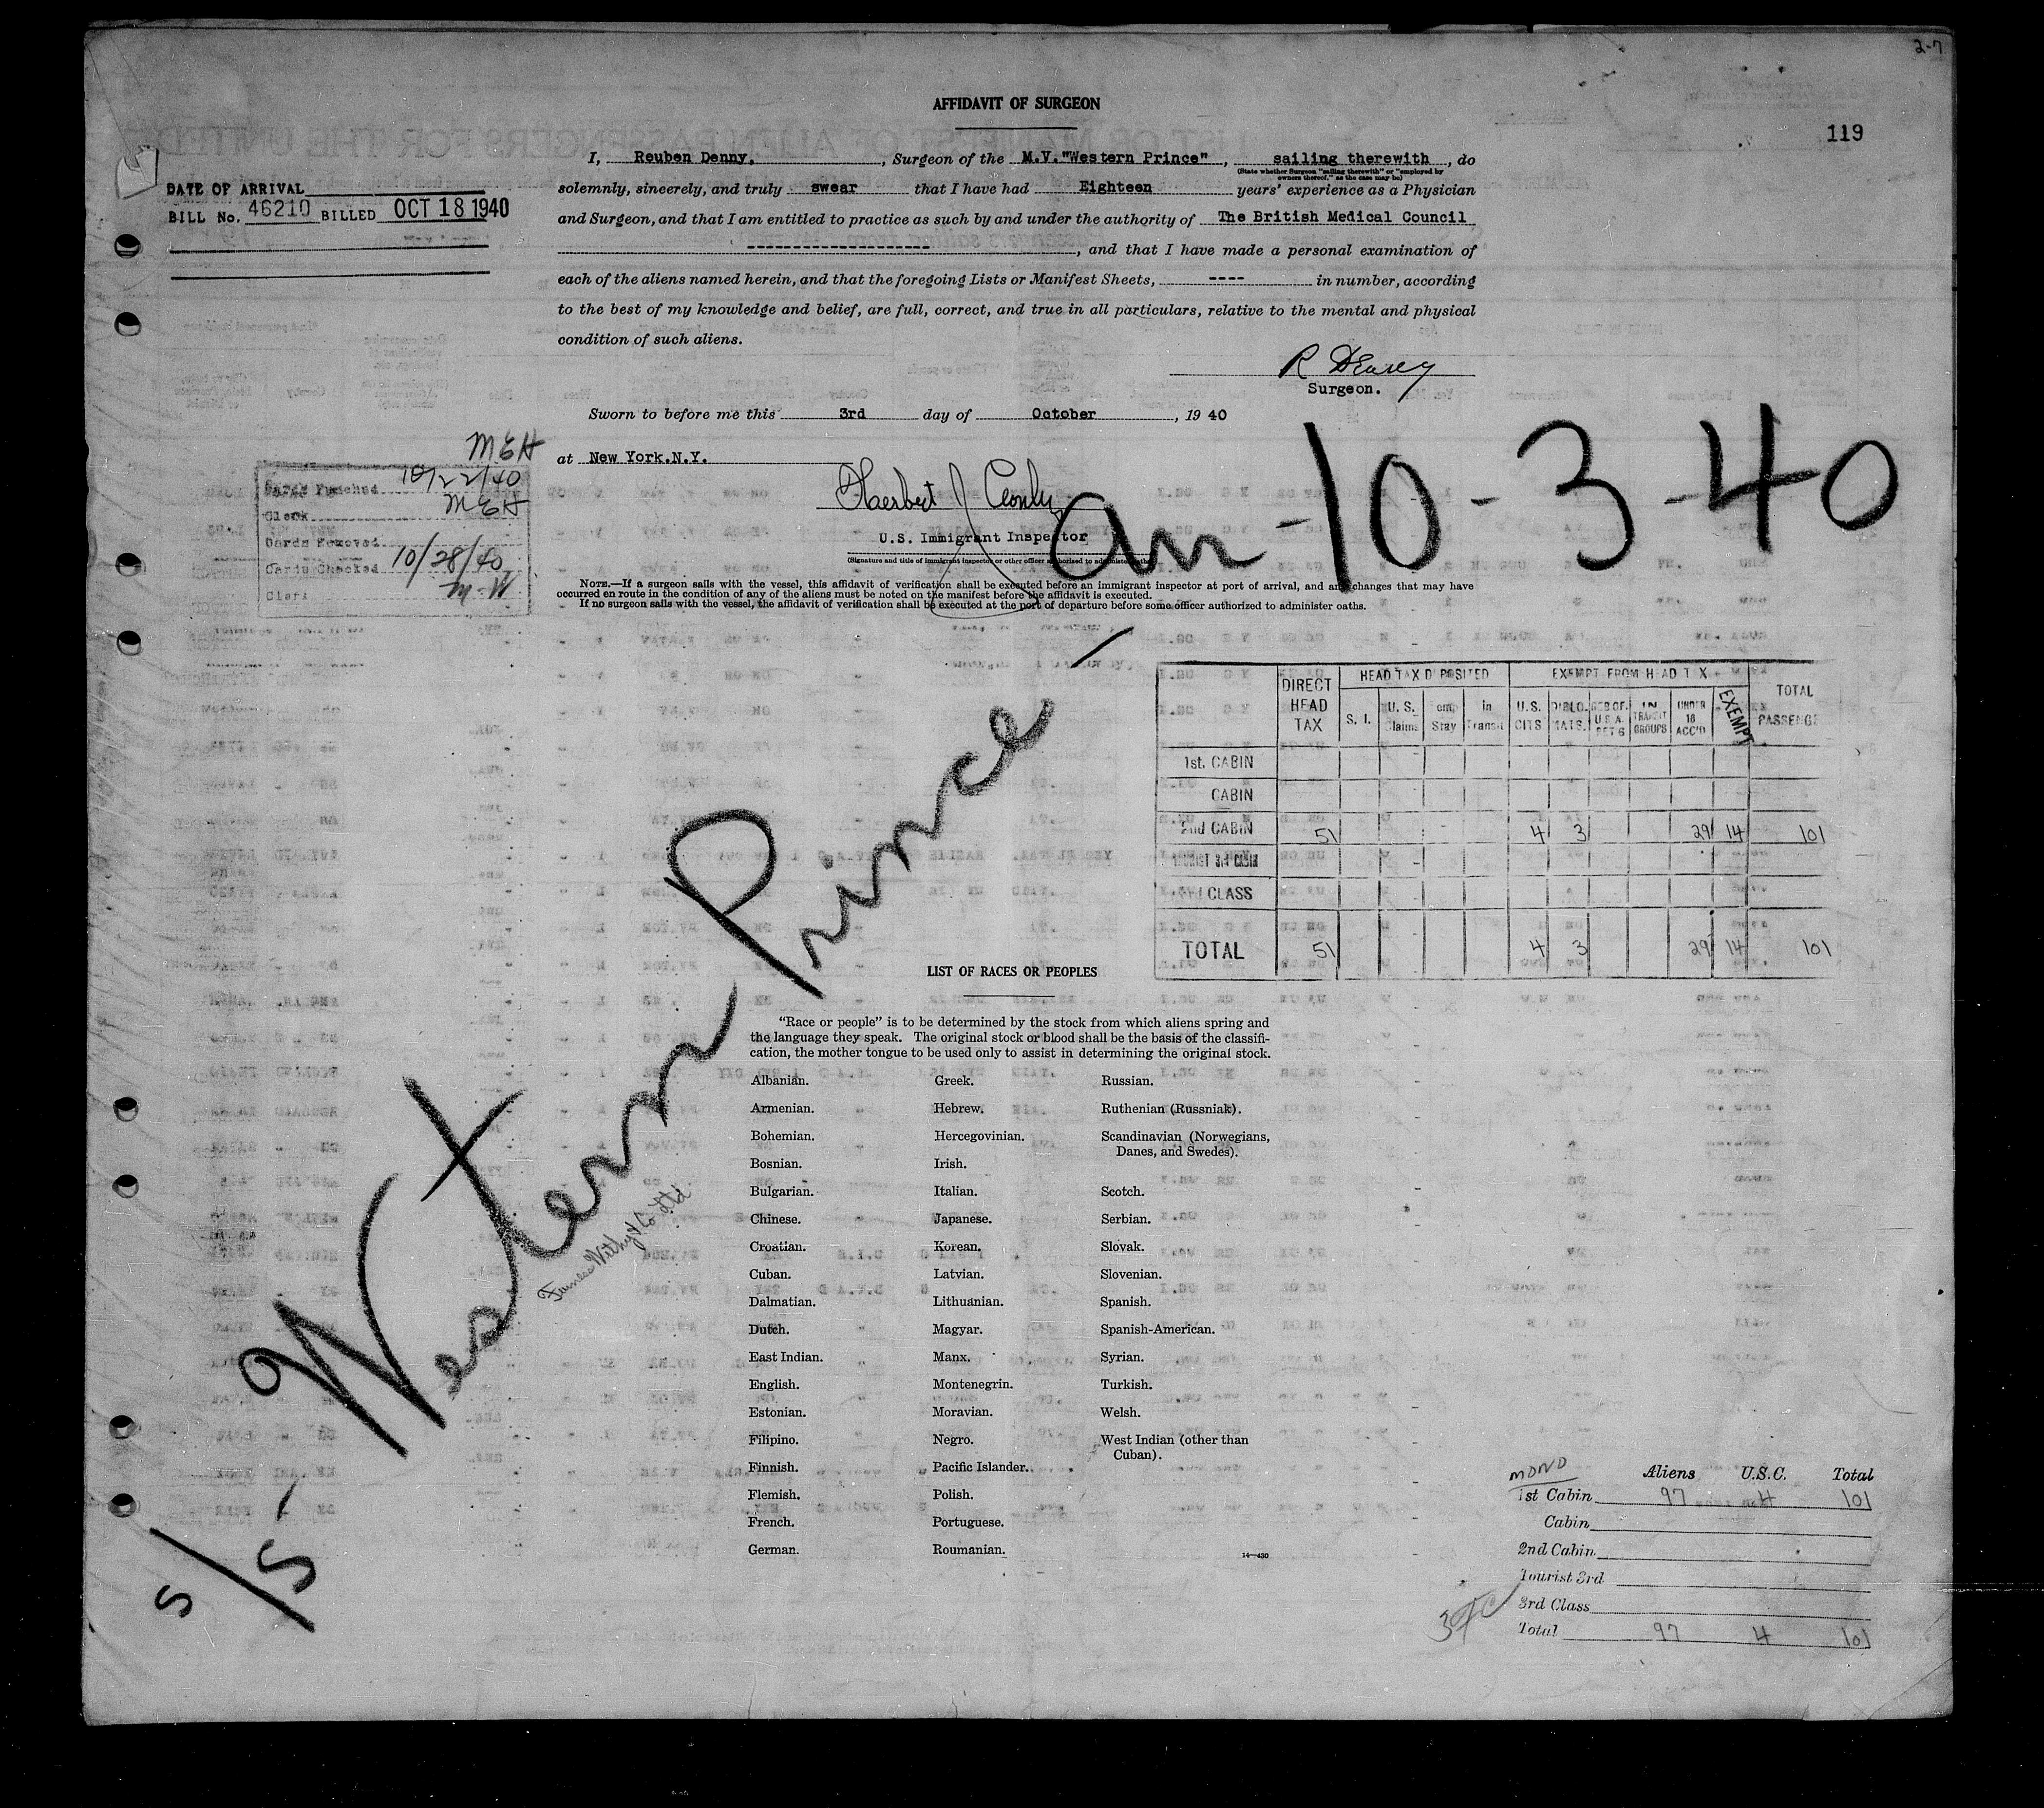 2-7
119
AFFIDAVIT OF SURGEON
I, Reuben Denny. , Surgeon of the M.V."Western Prince" , sailing therewith , do
(State whether Surgeon "sailing therewith" or "employed by owners thereof," as the case may be)
solemnly, sincerely, and truly swear that I have had Eighteen years' experience as a Physician
and Surgeon, and that I am entitled to practice as such by and under the authority of The British Medical Council
, and that I have made a personal examination of
each of the aliens named herein, and that the foregoing Lists or Manifest Sheets, ---- in number, according
to the best of my knowledge and belief, are full, correct, and true in all particulars, relative to the mental and physical
condition of such aliens.
R Denny
Surgeon.
Sworn to before me this 3rd day of October , 19 40
at New York.N.Y.
Herbert J
U.S. Immigrant Inspector
(Signature and title of immigrant inspector or other officer authorized to administer
NOTE.—If a surgeon sails with the vessel, this affidavit of verification shall be executed before an immigrant inspector at port of arrival, and any changes that may have
occurred en route in the condition of any of the aliens must be noted on the manifest before the affidavit is executed.
If no surgeon sails with the vessel, the affidavit of verification shall be executed at the port of departure before some officer authorized to administer oaths.
DATE OF ARRIVAL
BILL No. 46210 BILLED OCT 18 1940
MEH
Cards Punched 10/22/40
Clerk MEH
Cards Removed
Cards Checked 10/28/40
Clerk M-W
Arr - 10 - 3 - 40
S/S - Western Prince -
Furness Withy & Co Ltd
DIRECT HEAD TAX
HEAD TAX DEPOSITED
S. I. U. S. Claims Temp Stay in Transit
EXEMPT FROM HEAD TAX
U.S. CITS DIPLO. MATS. RES OF. U.S.A. RET'G IN TRANSIT GROUPS UNDER 16 ACC'D EXEMPT
TOTAL PASSENGE
1st. CABIN
CABIN
2nd CABIN 51 4 3 29 14 101
TOURIST 3rd CABIN
3rd CLASS
TOTAL 51 4 3 29 14 101
LIST OF RACES OR PEOPLES
"Race or people" is to be determined by the stock from which aliens spring and
the language they speak. The original stock or blood shall be the basis of the classifi-
cation, the mother tongue to be used only to assist in determining the original stock.
Albanian. Greek. Russian.
Armenian. Hebrew. Ruthenian (Russniak).
Bohemian. Hercegovinian. Scandinavian (Norwegians,
Danes, and Swedes).
Bosnian. Irish.
Bulgarian. Italian. Scotch.
Chinese. Japanese. Serbian.
Croatian. Korean. Slovak.
Cuban. Latvian. Slovenian.
Dalmatian. Lithuanian. Spanish.
Dutch. Magyar. Spanish-American.
East Indian. Manx. Syrian.
English. Montenegrin. Turkish.
Estonian. Moravian. Welsh.
Filipino. Negro. West Indian (other than
Cuban).
Finnish. Pacific Islander.
Flemish. Polish.
French. Portuguese.
German. Roumanian.
14—430
MOND Aliens U.S.C. Total
1st Cabin 97 4 101
Cabin
2nd Cabin
Tourist 3rd
3rd Class
Total 97 4 101